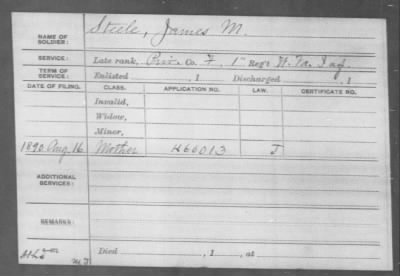 NAME OF SOLDIER: Steele, James M.
SERVICE: Late rank, Priv. Co. F, 1" Reg't W. Va. Inf.
TERM OF SERVICE: Enlisted , 1 Discharged , 1
DATE OF FILING. CLASS. APPLICATION NO. LAW. CERTIFICATE NO.
Invalid,
Widow,
Minor,
1890 Aug 16 Mother 466013 J
ADDITIONAL SERVICES:
REMARKS:
Died , 1 , at